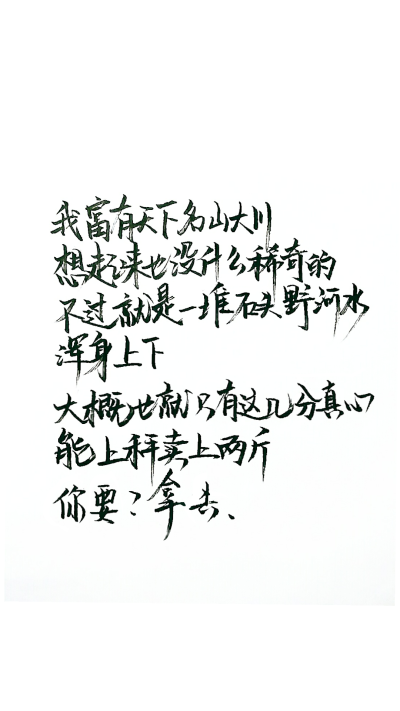 我富有天下名山大川
想起来也没什么稀奇的
不过就是一堆石头野河水
浑身上下
大概也就只有这几分真心
能上秤卖上两斤
你要？拿去、